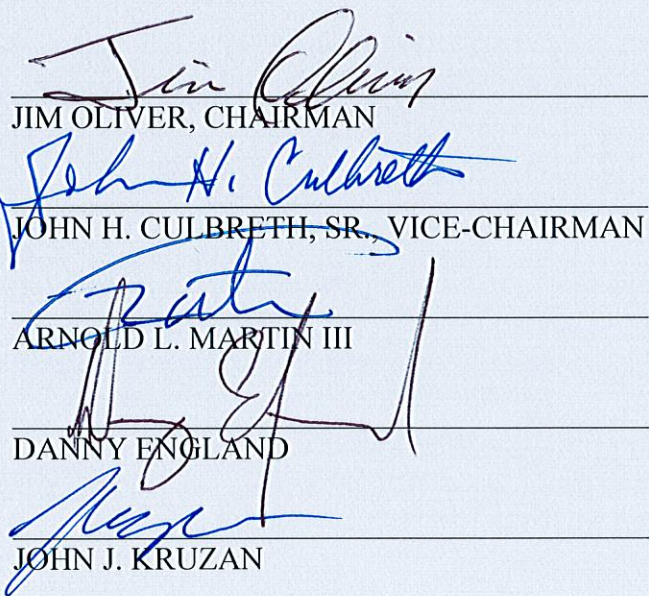 Jim Oliver
JIM OLIVER, CHAIRMAN
John H. Culbreth
JOHN H. CULBRETH, SR., VICE-CHAIRMAN
ARNOLD L. MARTIN III
DANNY ENGLAND
JOHN J. KRUZAN